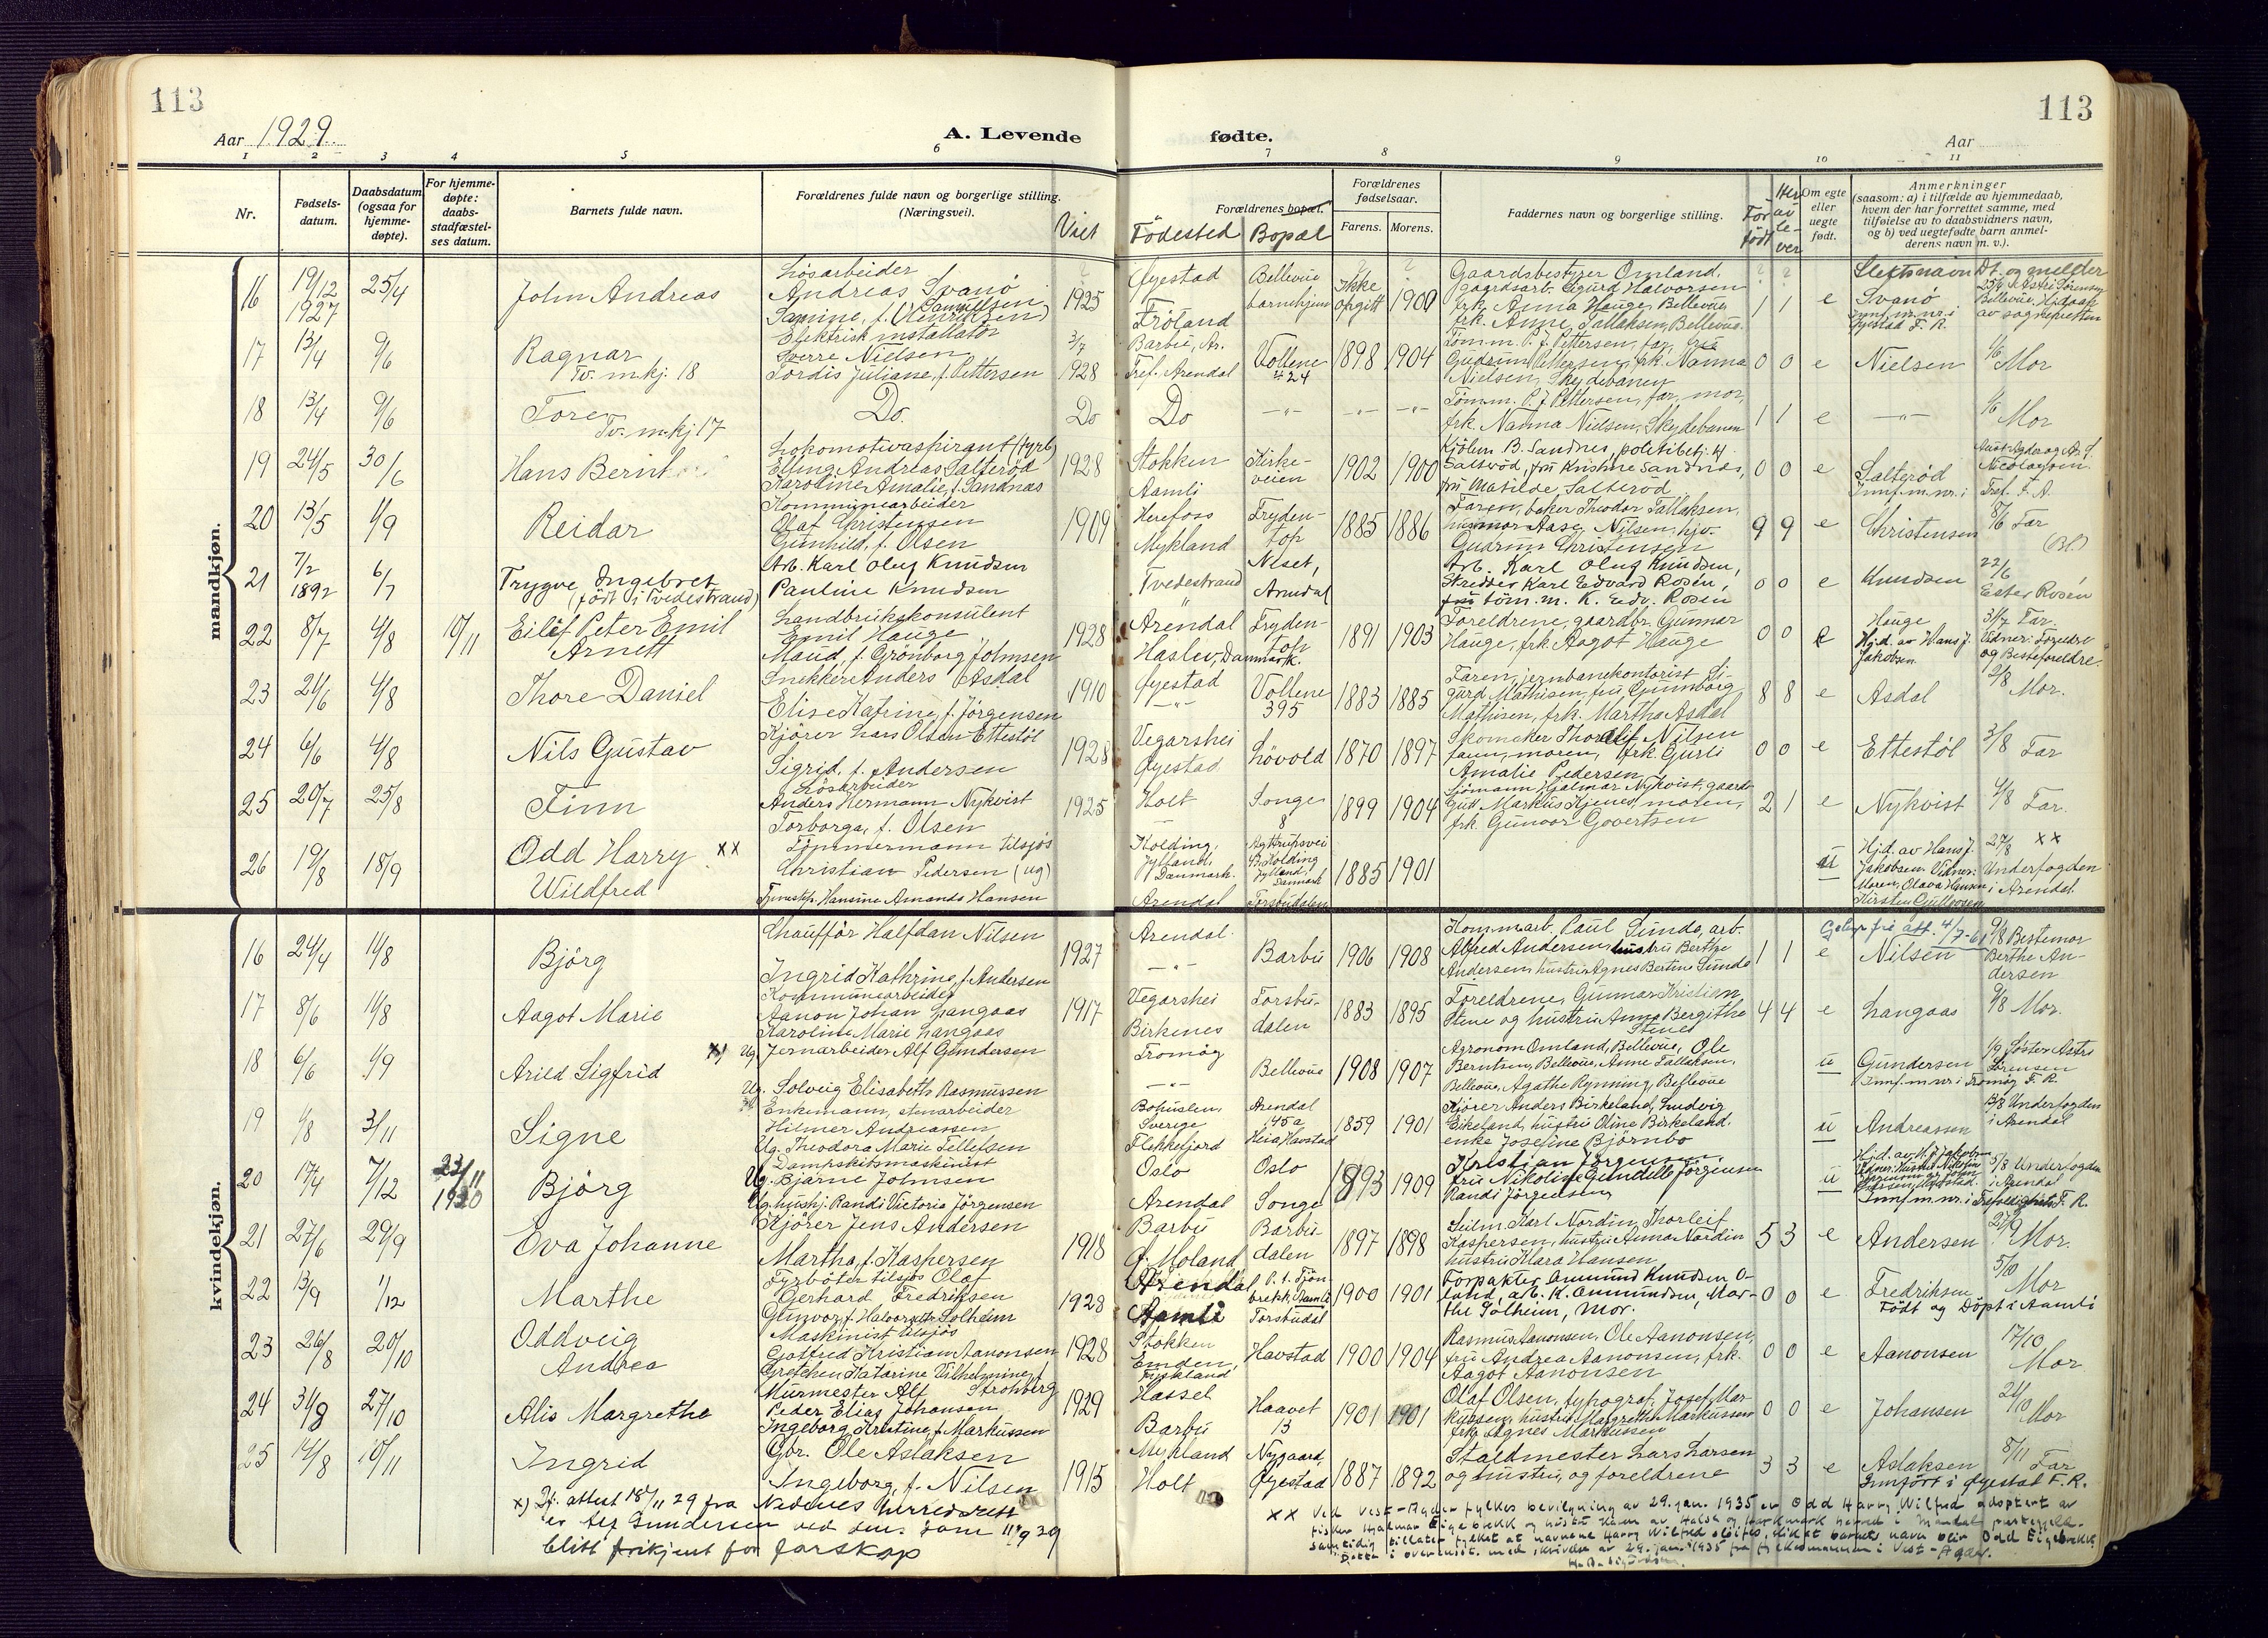 113
113
Aar 1929
A. Levende
fødte.
Aar
1 2 3 4 5 6 7 8 9 10 11
Nr.
Fødsels-
datum.
Daabsdatum
(ogsaa for
hjemme-
døpte).
For hjemme-
døpte:
daabs-
stadfæstel-
ses datum.
Barnets fulde navn.
Forældrenes fulde navn og borgerlige stilling.
(Næringsvei).
Viet
Forældrenes bopæl.
Födested
Bopæl
Forældrenes
fødselsaar.
Farens. Morens.
Faddernes navn og borgerlige stilling.
Før
født
Herav
le-
ver
Om egte
eller
uegte
født.
Anmerkninger
(saasom: a) i tilfælde av hjemmedaab,
hvem der har forrettet samme, med
tilføielse av to daabsvidners navn,
og b) ved uegtefødte barn anmel-
derens navn m. v.).
mandkjøn.
16 19/12 1927 25/4 John Andreas
Løsarbeider
Andreas Svanö
Samine, f. (Henriksen) Samuelsen
1925 Øyestad Fröland
Bellevue barnehjem
Ikke opgitt 1900
Gaardsbestyrer Omland,
gaardsarb. Sigurd Halvorsen
frk. Anna Hauge, Bellevue,
frk. Anne Tallaksen, Bellevue.
1 1 e
Slektsnavn Dt. og melder
Svanö
Innf. m. nr. i
Øyestad F. R.
17 13/4 9/6 Ragnar
Tv. m. kj. 18
Elektrisk installatör
Sverre Nielsen
Tordis Juliane, f. Pettersen
3/7 1928 Barbu, Ar.
Tref. Arendal
Vollene 424
1898 1904
Tömm. P. J. Pettersen, far, fru
Gudrun Pettersen, frk. Nanna
Nielsen, Skydebanen
0 0 e Nielsen
1/6 Mor
18 13/4 9/6 Tore
Tv. m. kj. 17
Do. Do Do
Tömm. P. J. Pettersen, far, mor,
frk. Nanna Nielsen, Skydebanen
1 1 e
1/6 Mor
19 24/5 30/6 Hans Bernt
Lokomotivaspirant (fyrb)
Elling Andreas Salteröd
Karoline Amalie, f. Sandnæs
1928 Stokken Aamli
Kirkeveien
1902 1900
Kjölen B. Sandnes, politibetj. H.
Salteröd, fru Kristine Sandnæs,
fru Matilde Salteröd
0 0 e Salteröd
Innf. m. nr. i Tref. F. A.
20 13/5 1/9 Reidar
Kommunearbeider
Olaf Christensen
Gunhild, f. Olsen
1909 Herefoss Mykland
Frydentop
1885 1886
Faren, baker Theodor Tallaksen,
husmor Aase Nilsen, hjv.
Gudrun Christensen
9 9 e Christensen
8/6 Far
21 7/2 1892 6/7 Trygve Ingebret
(født i Tvedestrand)
Arb. Karl Oluf Knudsen
Pauline Knudsen
Tvedestrand
Neset, Arendal
Arb. Karl Oluf Knudsen,
Skredder Karl Edvard Rosén,
fru töm. m. K. Edv. Rosén
0 0 e Knudsen
22/6 Ester Rosén
22 8/7 4/8 10/11 Eilif Peter Emil
Arnett
Landbrukskonsulent
Emil Hauge
Maud, f. Grönborg Johnsen
1928 Arendal
Haslev, Danmark.
Frydentop
1891 1903
Foreldrene, gaardbr. Gunnar
Hauge, frk. Aagot Hauge
0 0 e Hauge
31/7 Far.
Hj.d. av Hans J. Jakobsen
Vidner: Foreldre og Besteforeldre
23 21/6 4/8 Thore Daniel
Snekker Anders Asdal
Elise Katrine, f. Jörgensen
1910 Øyestad
Vollene 395
1883 1885
Faren, jernbanekontorist Si-
gurd Mathisen, fru Gunnborg
Mathisen, frk. Martha Asdal
8 8 e Asdal
2/8 Mor.
24 6/6 4/8 Nils Gustav
Kjörer Lars Olsen Ettestöl
Sigrid, f. Andersen
1928 Vegarshei Øyestad
Lövold
1870 1897
Skomaker Thoralf Nilsen
faren, moren, frk. Gurli
Amalie Pedersen
0 0 e Ettestöl
3/8 Far
25 20/7 25/8 Finn
Løsarbeider
Anders Hermann Nykvist
Torborga, f. Olsen
1925 Holt
Songe 8
1899 1904
Sjömann Hjalmar Nykvist, gaard-
gutt Markus Hjenes, moren,
frk. Gunvor Govertsen
2 1 e Nykvist
4/8 Far.
26 19/8 18/9 Odd Harry xx
Wildfred
Tömmermann tilsjös
Christian Pedersen (ug)
Tjenestep. Hansine Amanda Hansen
Kolding, Jylland, Danmark.
Arendal
Torsbudalen
1885 1901
u
Hj.d. av Hans J. Jakobsen. Vidner:
Moren, Olava Hansen
Kirsten Gullovsen
27/8 xx
Underfogden
i Arendal
kvindekjøn.
16 24/4 11/8 Björg
Chaufför Halfdan Nilsen
Ingrid Kathrine, f. Andersen
1927 Arendal.
Barbu
1906 1908
Komm.arb. Paul Sunde, arb.
Alfred Andersen, hustru Berthe
Andersen, hustru Agnes Bertine Sunde
1 1 e Nilsen
9/8 Bestemor
Berthe An-
dersen
17 8/6 11/8 Aagot Marie
Kommunearbeider
Aanon Johan Langaas
Karoline Marie Langaas
1917 Vegarshei Birkenes
Torsbudalen
1883 1895
Foreldrene, Gunnar Kristian
Stene og hustru Anna Bergithe
Stenes
4 4 e Langaas
9/8 Mor.
18 6/6 1/9 Arild Sigfrid x)
Ug. Jernarbeider Alf Gundersen
Ug. Solveig Elisabeth Rasmussen
Tromöy
Bellevue
1908 1907
Agronom Omland, Bellevue, Ole
Berntsen, Bellevue, Anne Tallaksen,
Bellevue, Agathe Rynning, Bellevue
u Gundersen
1/9 Söster Astri
Sørensen
Innf. m. nr. i Tromöy F. R.
19 1/8 3/11 Signe
Enkemann, stenarbeider
Hilmer Andreassen
Ug. Theodora Marie Tellefsen
Bohuslen, Sverige
Flekkefjord
Arendal 45a
Heia Havstad
1859 1901
Kjörer Anders Birkeland, Ludvig
Eikeland, hustru Oline Birkeland.
enke Josefine Björnbo
u Andreassen
13/8 Underfogden
i Arendal
20 17/4 7/12 23/11 1930 Björg
Dampskibsmaskinist
Ug. Bjarne Johnsen
Ug. hushj. Randi Victoria Jörgensen
Oslo Arendal
Oslo Songe
1893 1909
Kristian Jörgensen,
fru Nikoline Gundelle Jörgensen
Randi Jörgensen
u
Hj.d. av H. J. Jakobsen
5/8 Underfogden
i Arendal
Innf. m. nr. i Trefoldighets F. R.
21 27/6 29/9 Eva Johanne
Kjörer Jens Andersen
Martha, f. Kaspersen
1918 Barbu
Ø. Moland
Barbudalen
1897 1898
Seilm. Karl Nordin, Thorleif
Kaspersen, hustru Anna Nordin
hustru Klara Hansen
5 3 e Andersen
27/9 Mor.
22 13/9 1/12 Marthe
Fyrböter tilsjös Olaf
Gerhard Fredriksen
Gunvor, f. Halvorsdtr. Solheim
1928 Arendal
Aamli
Torsbudal
1900 1901
Forpakter Ommund Knudsen O-
land, arb. K. Ommundsen, Mar-
the Solheim, Mor.
0 0 e Fredriksen
5/10 Mor
Födt og Döpt i Aamli
23 26/8 20/10 Oddveig
Andrea
Maskinist tilsjös
Gotfred Kristian Aanonsen
Gretchen Katarine Vilhelmine, f.
Strohberg
1928 Stokken
Emden, Tyskland
Havstad
1900 1904
Rasmus Aanonsen, Ole Aanonsen,
fru Andrea Aanonsen, frk.
Aagot Aanonsen
0 0 e Aanonsen
17/10 Mor
24 31/8 27/10 Alis Margrethe
Murmester Alf
Peder Elias Johansen
Ingeborg Kristine, f. Markussen
1929 Hassel
Barbu
Haavet 13
1901 1901
Olaf Olsen, typograf, Josef Mar-
kussen, hustru Margrethe Markussen
frk. Agnes Markussen
0 0 e Johansen
24/10 Mor
25 14/8 10/11 Ingrid
Gbr. Ole Aslaksen
Ingeborg, f. Nilsen
1915 Mykland
Holt
Nygaard, Øyestad
1887 1892
Staldmester Lars Larsen
og hustru, og foreldrene
3 3 e Aslaksen
8/11 Far
Innfört i Øyestad F. R.
x) Iflg. attest 18/11 29 fra Nedenes herredsrett
er Alf Gundersen ved dom 11/9 29
blitt frikjent for farskap
xx Ved Vest-Agder fylkes bevilgning av 29. jan. 1935 er Odd Harry Wilfred adoptert av
fisker Hjalmar Eigebrekk og hustru av Halse og Harkmark herred i Mandal prestegjeld.
Samtidig tillater fylket at navnene Harry Wilfred sløifes, slik at barnets navn blir Odd Eigebrekk.
Dette i overensst. med skrivelse av 29. jan. 1935 fra fylkesmannen i Vest-Agder.